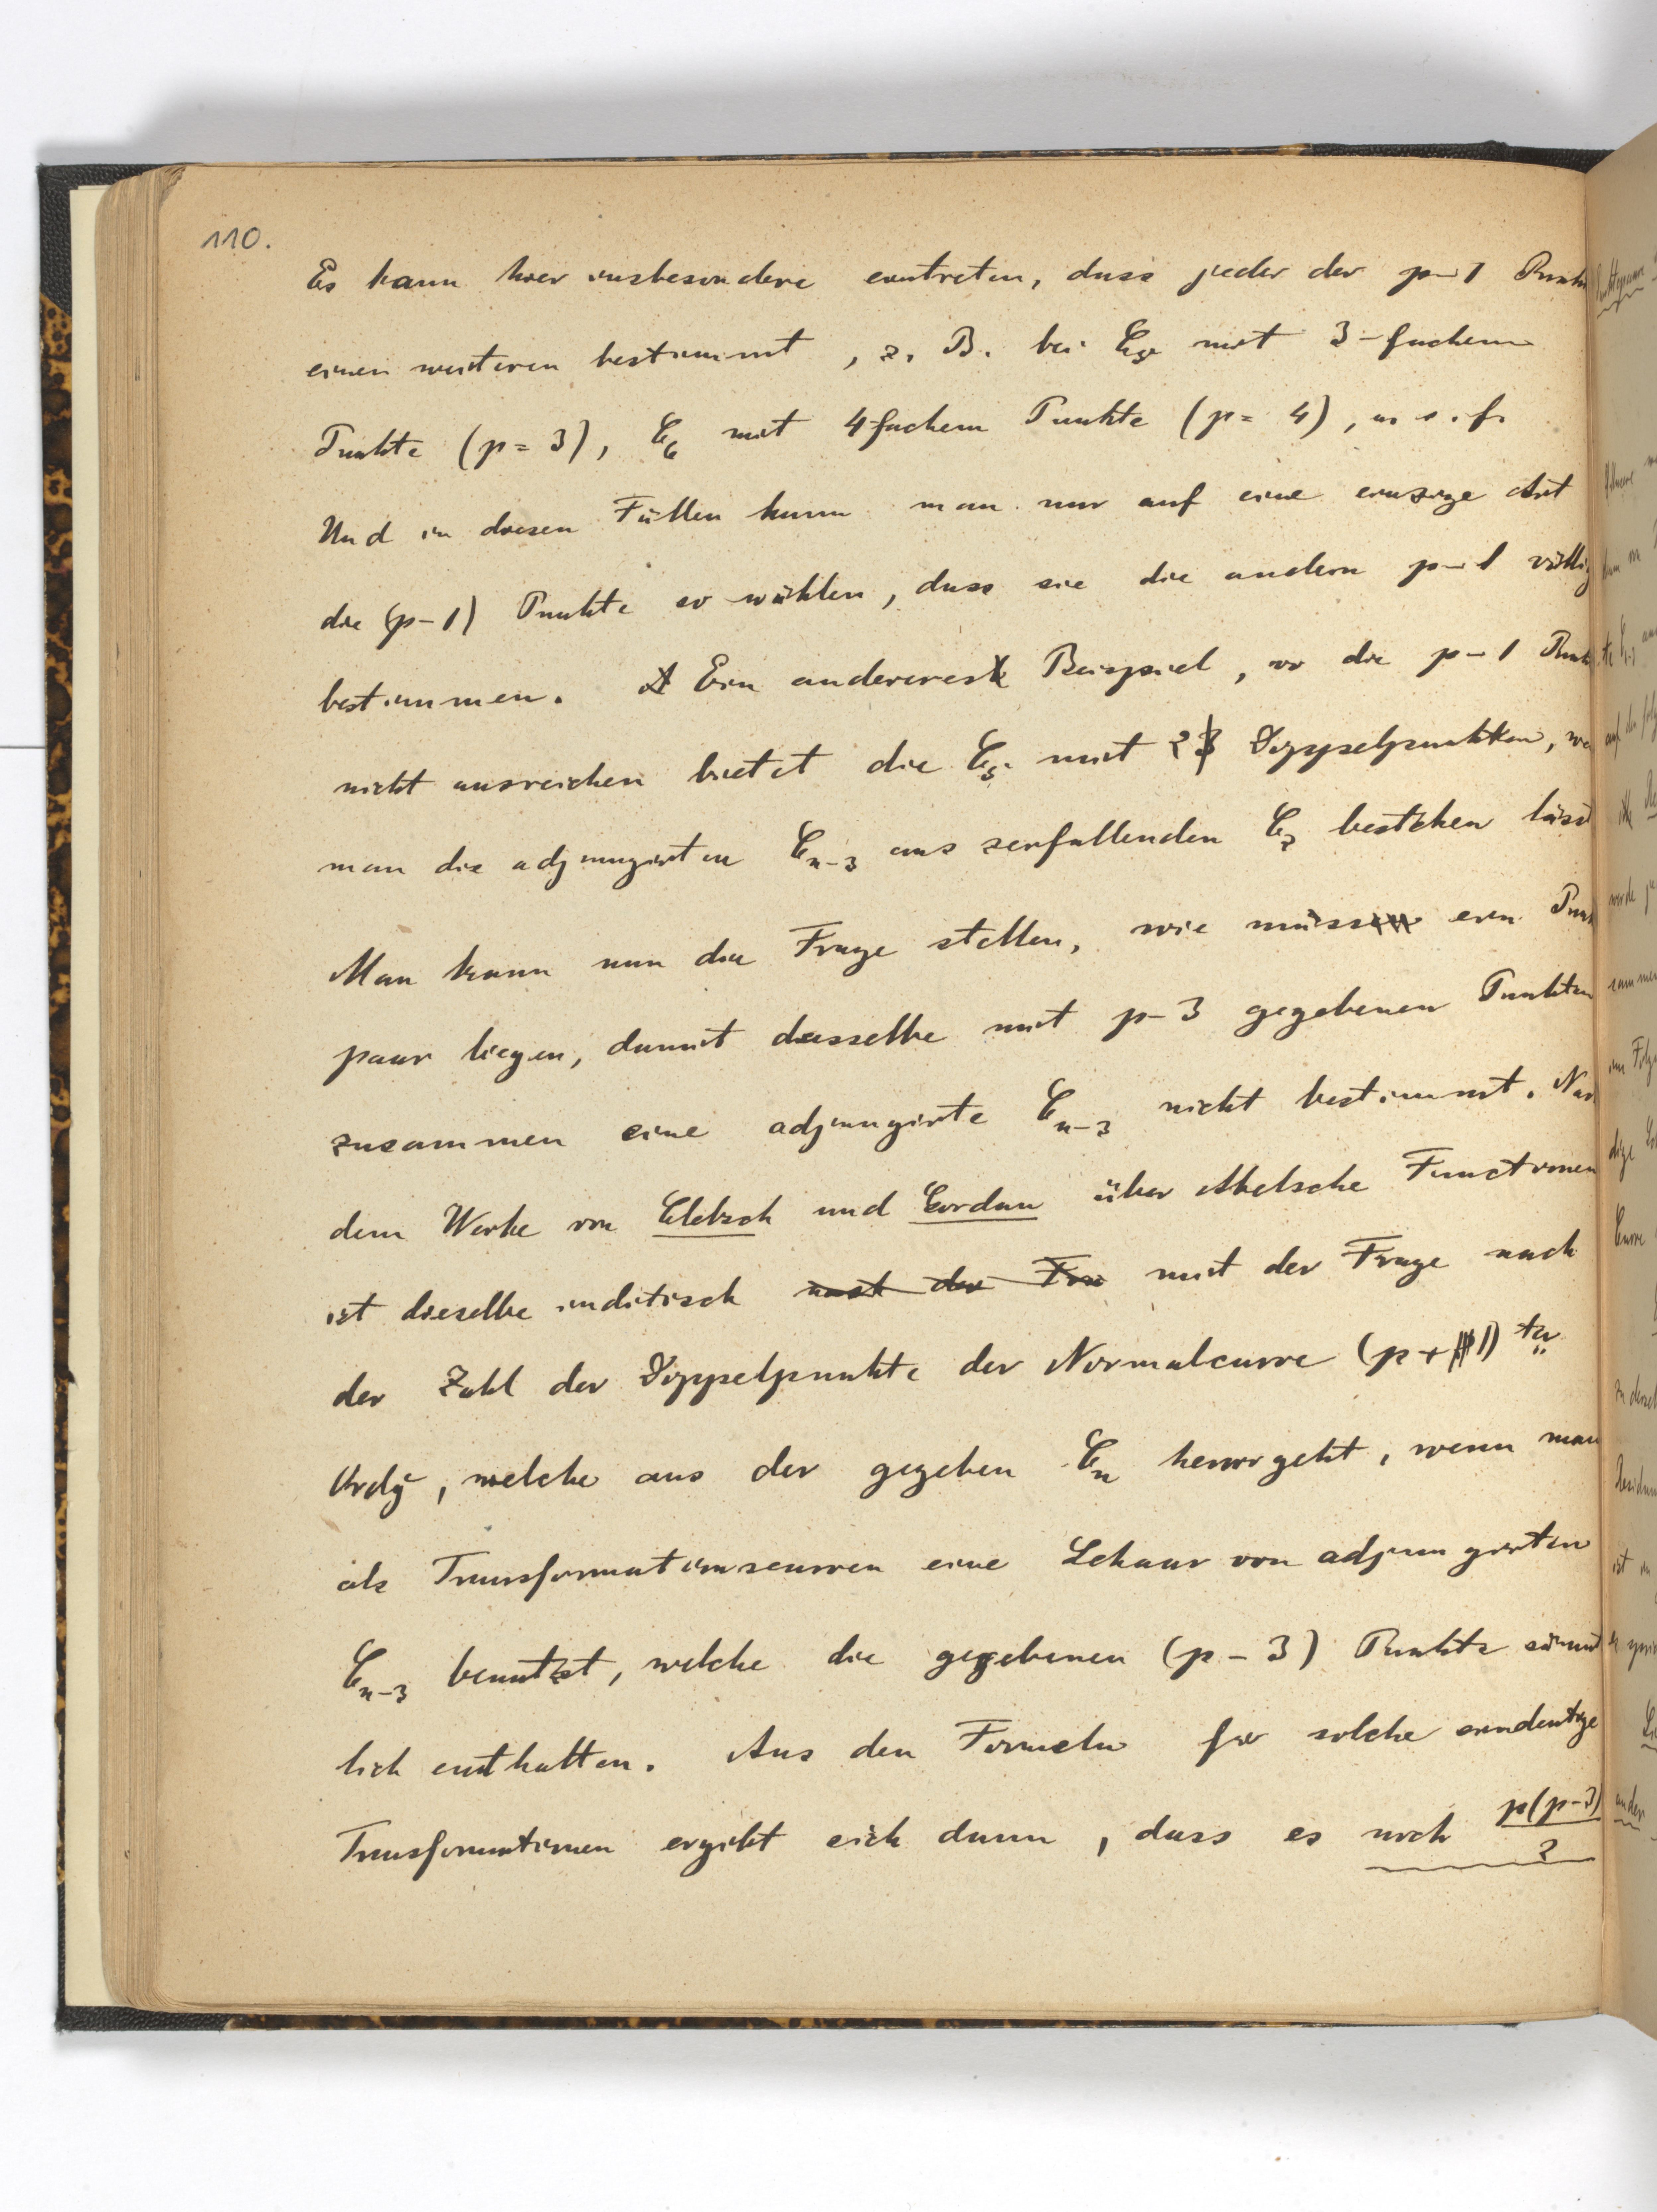 110.
Es kann hier insbesondere eintreten, dass jeder der p-1 Punkte
einen weiteren bestimmt, z. B. bei C5 mit 3-fachem
Punkte (p=3), C6 mit 4fachem Punkte (p=4), u. s. f.
Und in diesen Fällen kann man nur auf eine einzige Art
die (p-1) Punkte so wählen, dass sie die andern p-1 völlig
bestimmen. Ein anderes Beispiel, wo die p-1 Punkte
nicht ausreichen bietet die C5 mit 2 Doppelpunkten, wo
man die adjungirten Cn-3 aus zerfallenden C2 bestehen lässt
Man kann nun die Frage stellen, wie muss ein Punkt
paar liegen, damit dasselbe mit p-3 gegebenen Punkten
zusammen eine adjungirte Cn-3 nicht bestimmt. Nach
dem Werke von Clebsch und Gordan über Abelsche Functionen
ist dieselbe inditisch nach der Fra mit der Frage nach
der Zahl der Doppelpunkte der Normalcurve (p+1)ter
Ordg, welche aus der gegeben Cn hervorgeht, wenn man
als Transformationscurven eine Schaar von adjungirten
Cn-3 benutzt, welche die gegebenen (p-3) Punkte sämmt
lich enthalten. Aus den Formeln für solche eindeutige
Transformationen ergibt sich dann, dass es noch p(p-3)/2